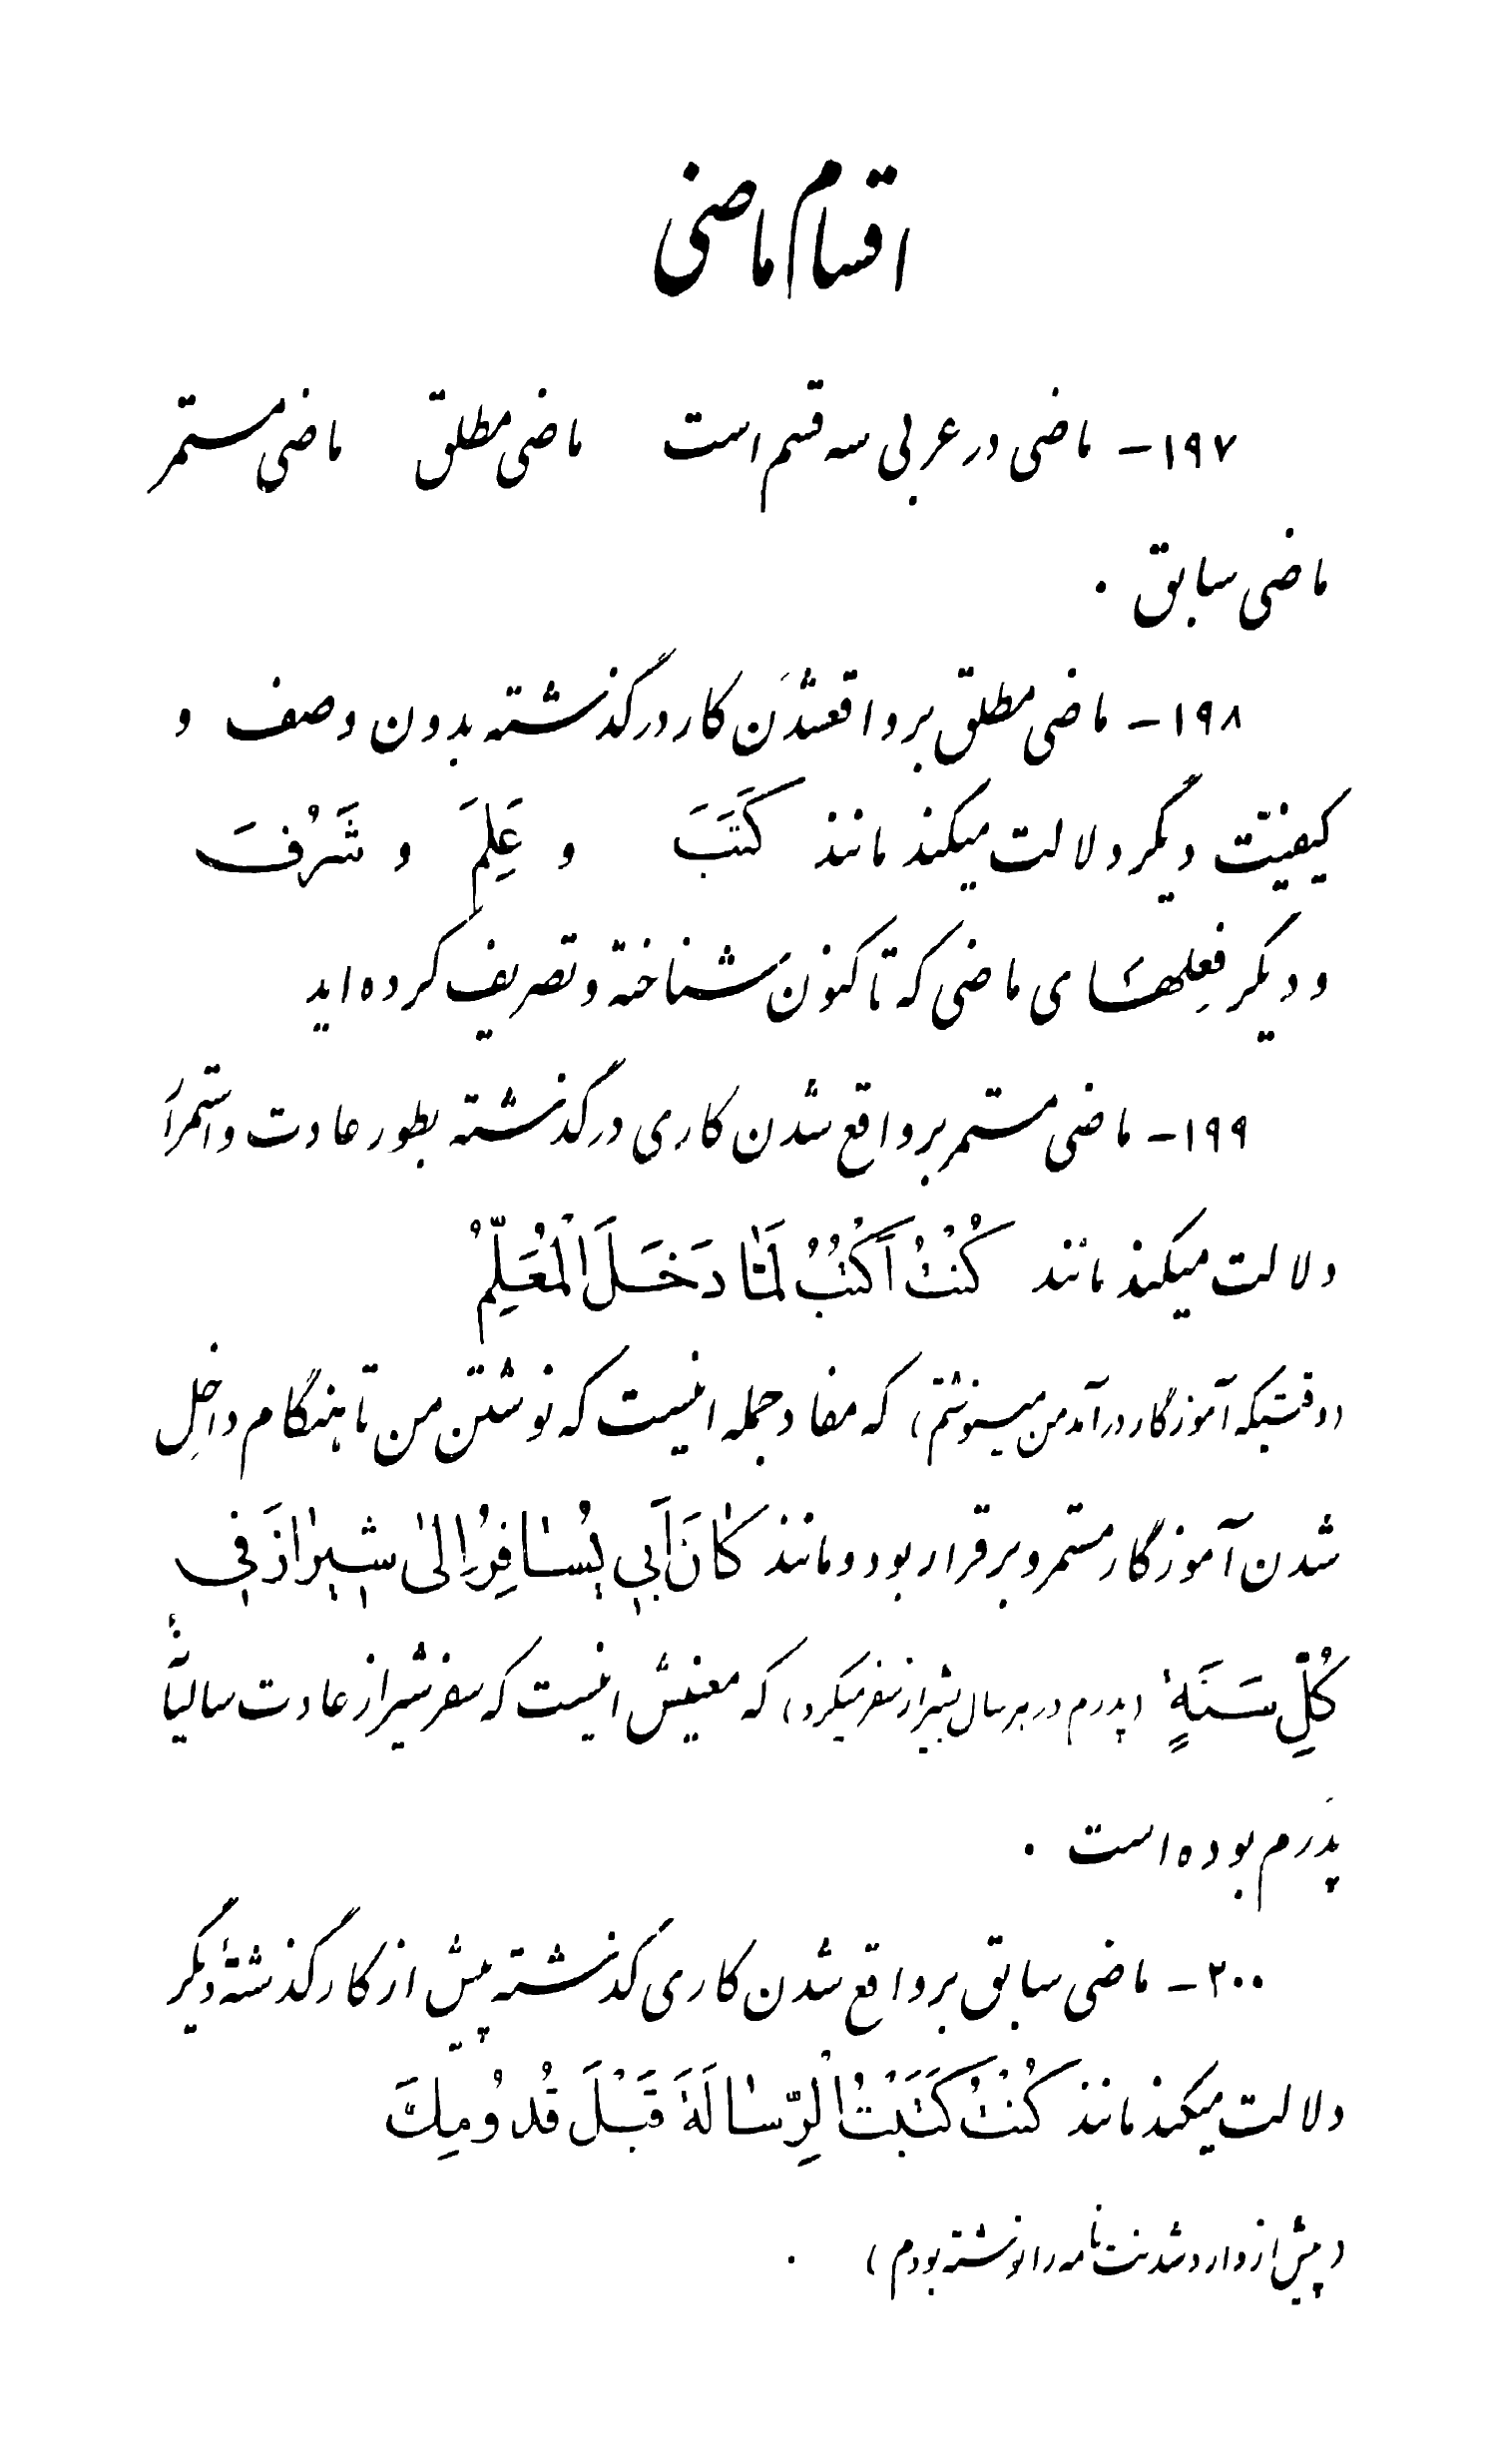 اقسام ماضی
۱۹۷ - ماضی در عربی سه قسم است ماضی مطلق ماضی مستمر
ماضی سابق .
۱۹۸ - ماضی مطلق بر واقعشدن کار در گذشته بدون وصف و
کیفیّت دیگر دلالت میکند مانند کَتَبَ و عَلِمَ و شَرُفَ
و دیگر فعلهای ماضی که تاکنون شناخته و تصریف کرده‌اید
۱۹۹ - ماضی مستمر بر واقع شدن کاری در گذشته بطور عادت و استمرار
دلالت میکند مانند كُنْتُ أَكْتُبُ لَمَّا دَخَلَ الْمُعَلِّمُ
(وقتیکه آموزگار درآمد من مینوشتم) که مفاد جمله اینست که نوشتن من تا هنگام داخل
شدن آموزگار مستمر و برقرار بود و مانند كَانَ أَبِي يُسَافِرُ إِلَىٰ شِيرَازَ فِي
كُلِّ سَنَةٍ (پدرم در هر سال بشیراز سفر میکرد) که معنیش اینست که سفر شیراز عادت سالیانهٔ
پدرم بوده است .
۲۰۰ - ماضی سابق بر واقع شدن کاری گذشته پیش از کار گذشتهٔ دیگر
دلالت میکند مانند كُنْتُ كَتَبْتُ الرِّسَالَةَ قَبْلَ قُدُومِكَ
(پیش از وارد شدنت نامه را نوشته بودم) .